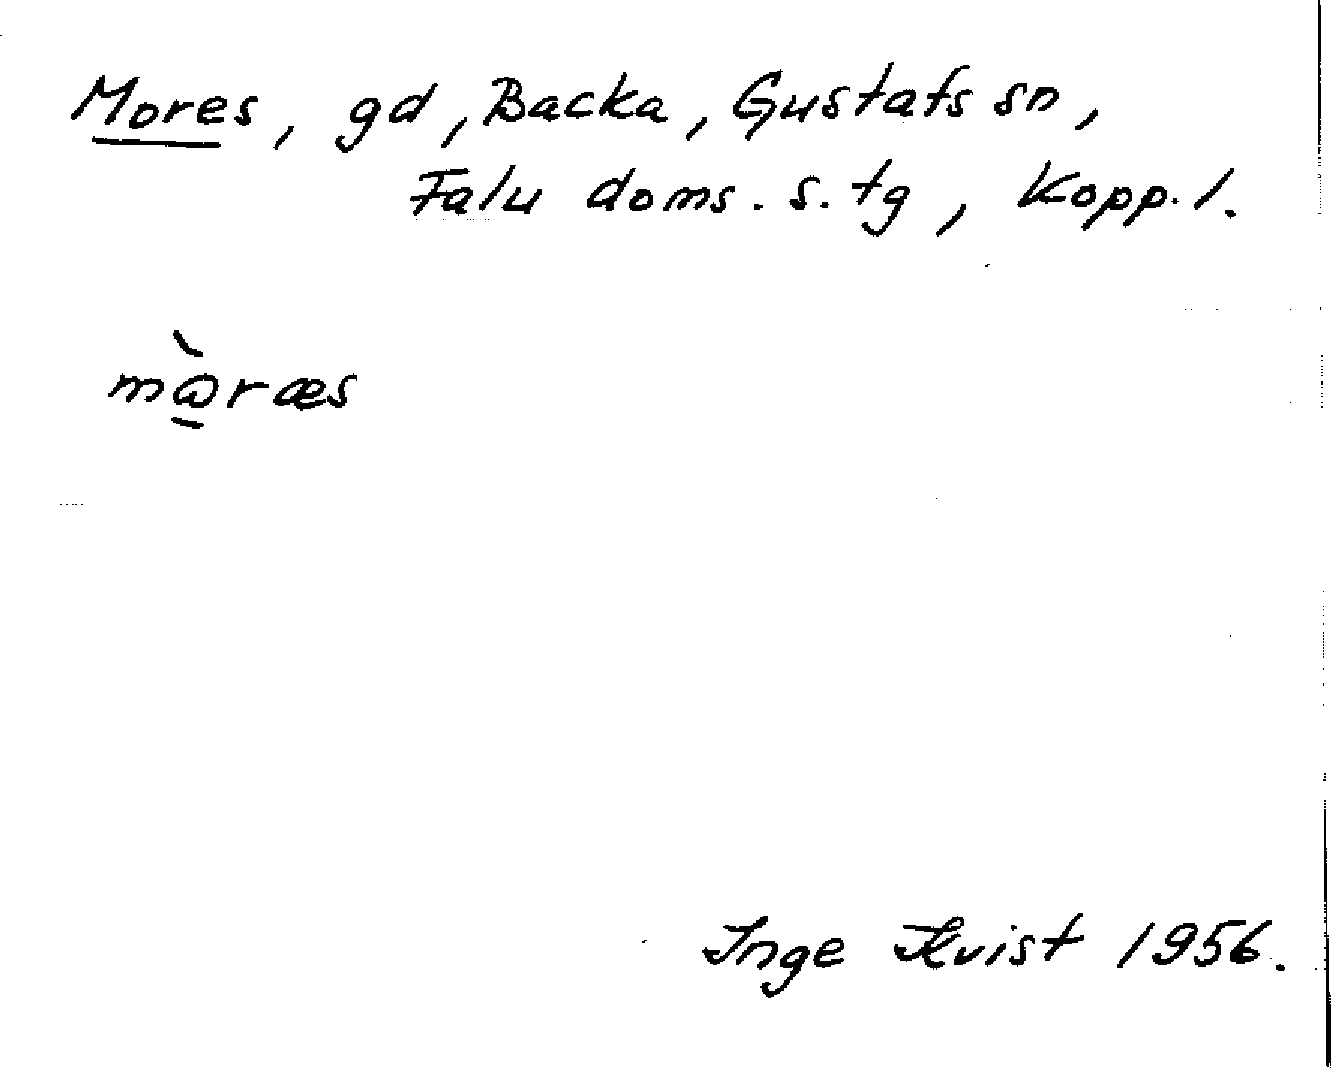 Mores, gd, Backa, Gustafs sn,
Falu doms. s. tg, Kopp. l.
mὼ̲ræs
Inge Kvist 1956.